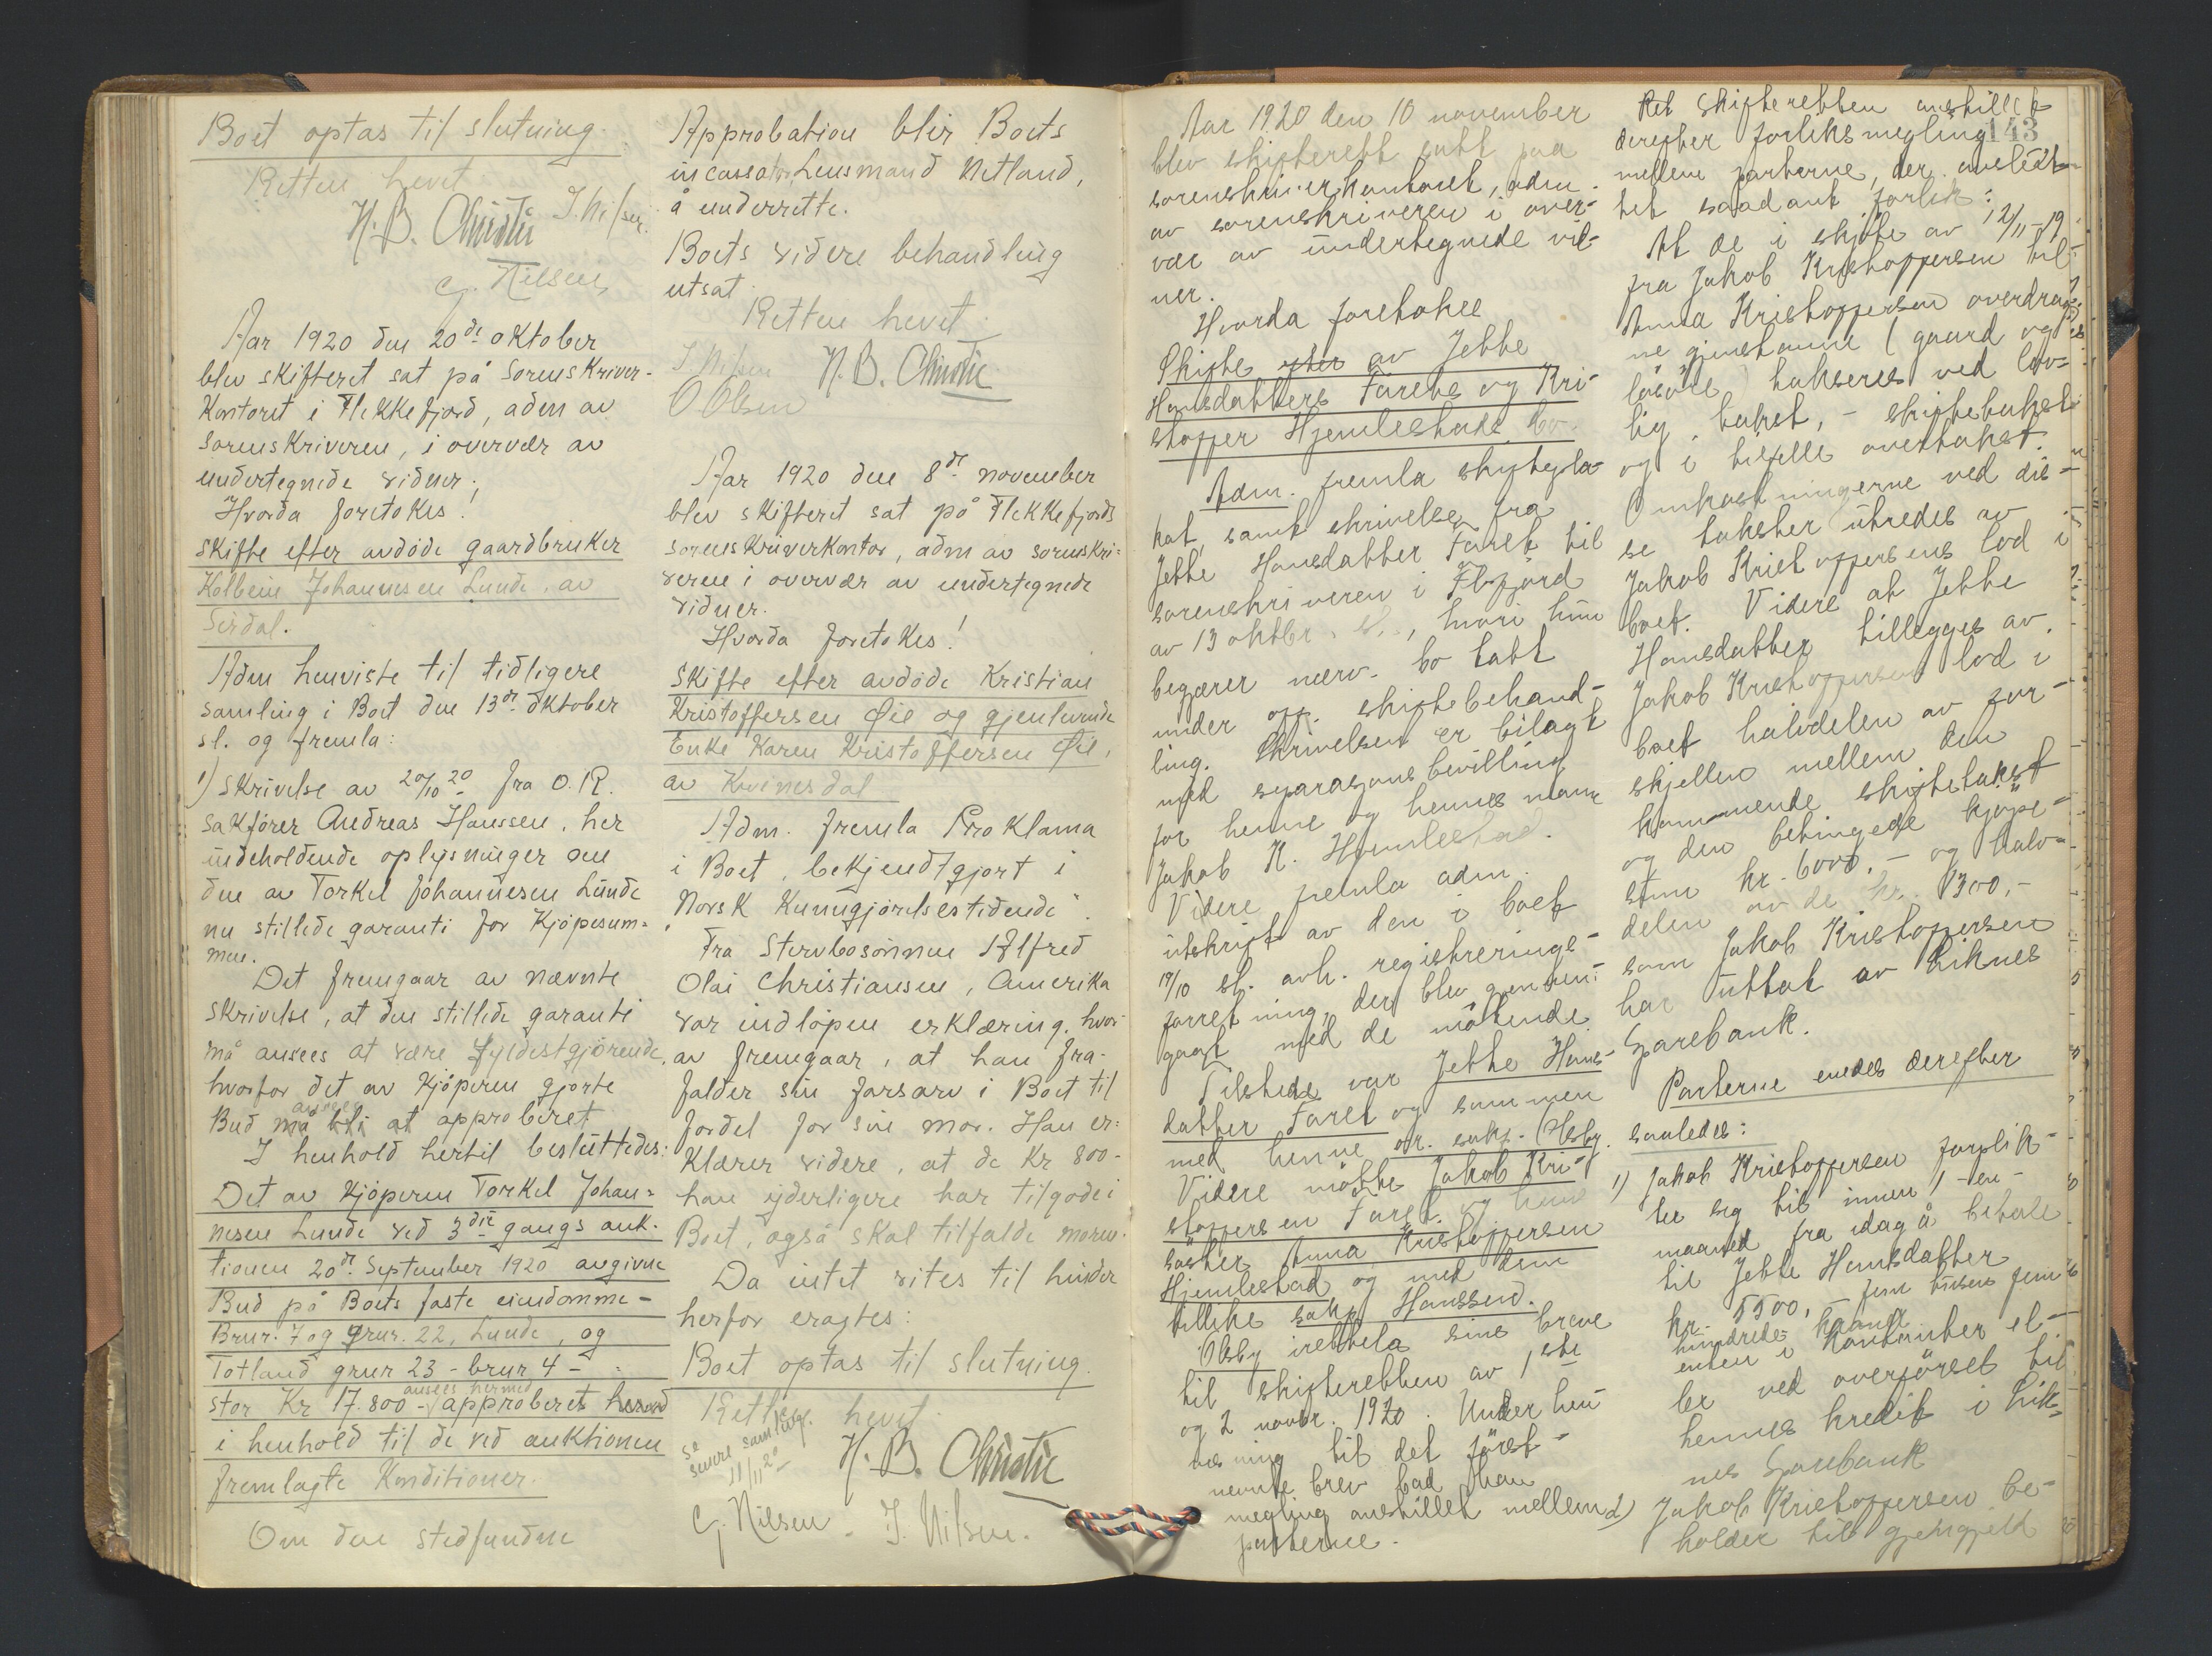 Boet optas til slutning.
Retten hevet.
H. B. Christie J. Nilsen.
G. Nilsen
Aar 1920 den 20de oktober
blev skifteret sat på Sorenskriver-
Kontoret i Flekkefjord, adm av
Sorenskriveren, i overvær av
undertegnede vidner;
Hvorda foretokes!
Skifte efter avdøde gaardbruker
Kolbein Johannesen Lunde, av
Sirdal.
Adm henviste til tidligere
samling i Boet den 13de oktober
sl. og fremla:
1) Skrivelse av 20/10 20 fra O. R.
Sakfører Andreas Hanssen, her
indeholdende oplysninger om
den av Torkel Johannesen Lunde
nu stillede garanti for Kjøpesum=
men.
Det fremgaar av nævnte
Skrivelse, at den stillede garanti
må ansees at være fyldestgjørende,
hvorfor det av Kjøperen gjorte
Bud må ansees at approberet
I henhold hertil besluttedes:
Det av Kjøperen Torkel Johan=
nesen Lunde ved 3die gangs auk-
tionen 20de September 1920 avgivne
Bud på Boets faste eiendomme-
Brnr. 7 og grnr. 22, Lunde, og
Totland grnr 23 - brnr 4 -
stor Kr 17.800 - ansees hermed approberet
i henhold til de ved auktionen
fremlagte Konditioner.
Om den stedfundne
Approbation blir Boets
incassator Lensmand Netland,
å underrette.
Boets videre behandling
utsat.
Retten hevet.
J. Nilsen H. B. Christie
O Olsen
Aar 1920 den 8de november
blev skifteret sat på Flekkefjords
sorenskriverkontor, adm av sorenskri=
veren i overvær av undertegnede
vidner.
Hvorda foretokes!
Skifte efter avdøde Kristian
Kristoffersen Øie og gjenlevende
Enke Karen Kristoffersen Øie,
av Kvinesdal
Adm. fremla Proklama
i Boet, bekjendtgjort i
"Norsk Kunngjørelsestidende".
Fra Stervbosønnen Alfred
Olai Christiansen, Amerika
var indløpen erklæring, hvor
av fremgaar, at han fra-
falder sin farsarv i Boet til
fordel for sin mor. Han er=
klærer videre, at de Kr 800-
han yderligere har tilgode i
Boet, også skal tilfalde moren.
Da intet vites til hinder
herfor eragtes:
Boet optas til slutning.
Retten hevet.
Se senere samling 11/11 20
H. B. Christie
G. Nilsen. J. Nilsen.
Aar 1920 den 10 november
blev skifterett satt paa
sorenskriverkontoret, adm.
av sorenskriveren i over-
vær av undertegnede vit-
ner.
Hvorda foretokes
Skifte av Jette
Hansdatters Farets og Kri-
stoffer Hjemlestads bo.
Adm. fremla skifte
samt skrivelse fra
Jette Hansdatter Faret til
sorenskriveren i Fl.fjord
av 13 oktbr. sl., hvori hun
begjærer nærv. bo tatt
under off. skiftebehand-
ling. Skrivelsen er bilagt
med separasjonsbevilling
for henne og hennes mann
Jakob K. Hjemlestad.
Videre fremla adm.
utskrift av den i boet
19/10 sl. avh. registrerings-
forretning, der blev gjennem-
gaat med de møtende.
Tilstede var Jette Hans-
datter Faret og sammen
med henne or. sakf. Olsby.
Videre møtte Jakob Kri-
stoffersen Faret og hans
søster Anna Kristoffersen
Hjemlestad og med dem
tillike sakf. Hanssen.
Olsby irettela sine breve
til skifteretten av 1ste
og 2 novbr. 1920. Under hen-
visning til det først-
nevnte brev bad han
megling anstillet mellem
parterne.
143
Ret skifteretten anstillet
derefter forliksmegling
mellem parterne, der avsluttet
saadant forlik:
At de i skjøte av 12/11-19
fra Jakob Kristoffersen til
Anna Kristoffersen overdrag-
ne gjenstanne (gaard og
løsøre takseres ved lov-
lig takst, - skiftetakst
og i tilfelle overtakst.
Omkostningerne ved dis-
se takster utredes av
Jakob Kristoffersens lod i
boet. Videre at Jette
Hansdatter tillegges av
Jakob Kristoffersens lod i
boet halvdelen av for-
skjellen mellem den
kommende skiftetakst
og den betingede kjøpe-
sum kr. 6000,- og halv-
delen av de kr. 1300,-
som Jakob Kristoffersen
har uttat av Liknes
Sparebank.
Parterne enedes derefter
saaledes:
1) Jakob Kristoffersen forplik-
ter sig til innen 1 - en -
maaned fra idag å betale
til Jette Hansdatter
kr. 5500,- fem tusen fem
hundrede kroner
enten i kontanter el-
ler ved overførsel til
hennes kredit i Lik-
nes Sparebank
2) Jakob Kristoffersen be-
holder til gjengjeld